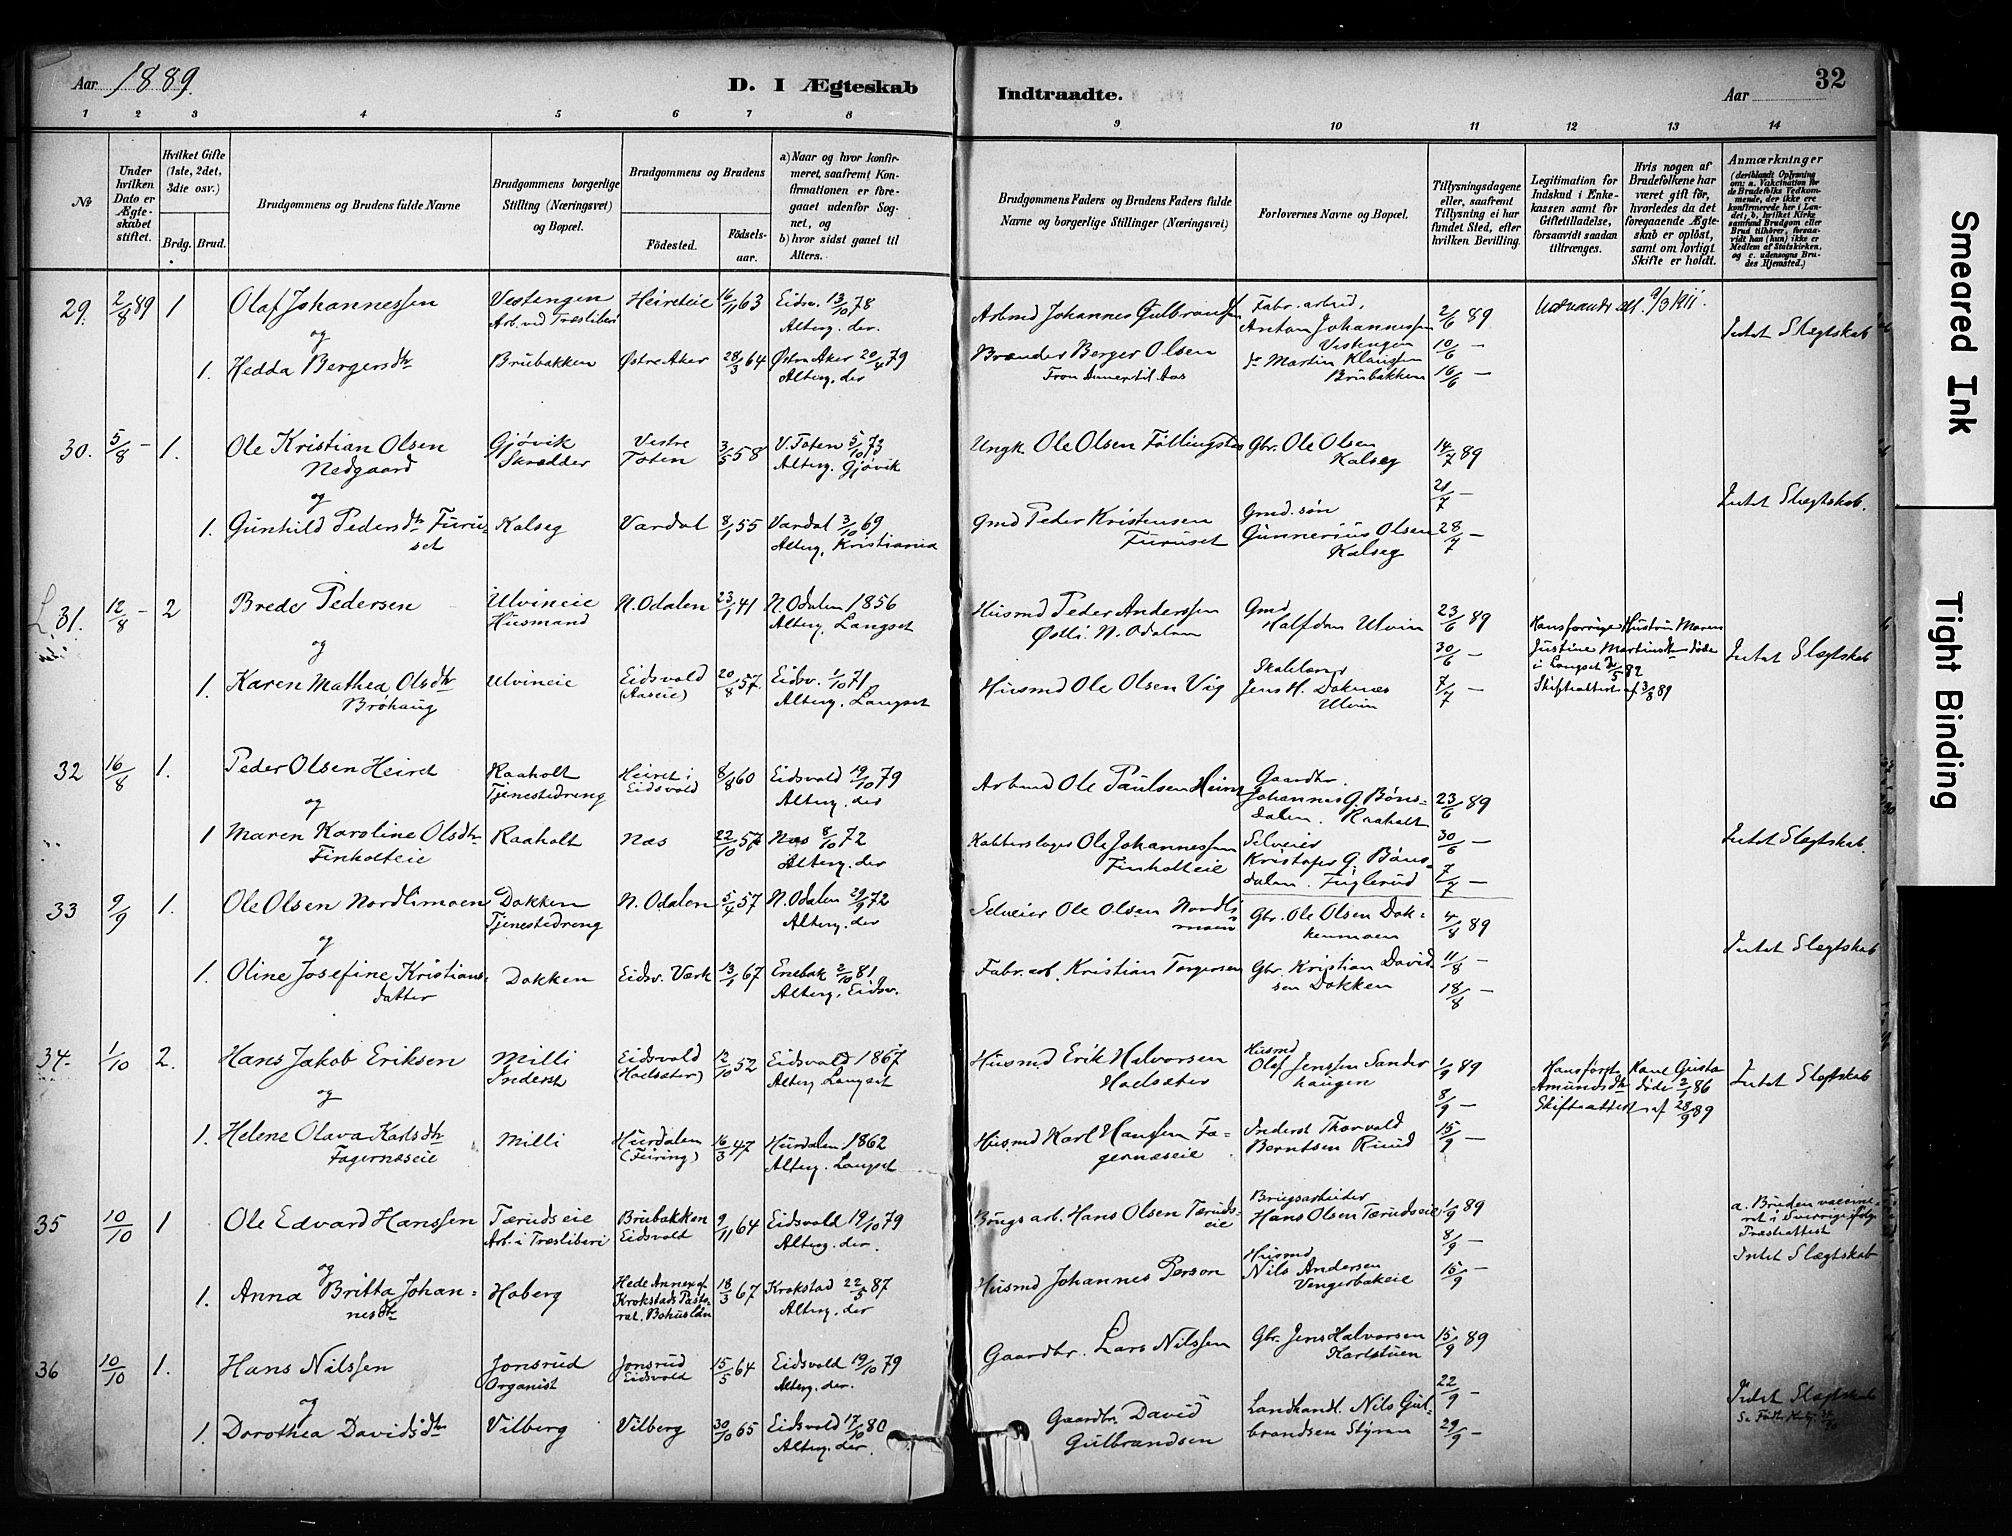 Aar 1889.
D. I Ægteskab
Indtraadte.
Aar
32
1 2 3 4 5 6 7 8 9 10 11 12 13 14
№
Under hvilken Dato er Ægteskabet stiftet.
Hvilket Gifte (1ste, 2det, 3die osv.)
Brdg. Brud.
Brudgommens og Brudens fulde Navne
Brudgommens borgerlige Stilling (Næringsvei) og Bopæl.
Brudgommens og Brudens
Fødested. Fødselsaar.
a) Naar og hvor konfirmeret, saafremt Konfirmationen er foregaaet udenfor Sognet, og
b) hvor sidst gaaet til Alters.
Brudgommens Faders og Brudens Faders fulde Navne og borgerlige Stillinger (Næringsvei)
Forlovernes Navne og Bopæl.
Tillysningsdagene eller, saafremt Tillysning ei har fundet Sted, efter hvilken Bevilling.
Legitimation for Indskud i Enkekassen samt for Giftetilladelse, forsaavidt saadan tiltrænges.
Hvis nogen af Brudefolkene har været gift før, hvorledes da det foregaaende Ægteskab er opløst, samt om lovligt Skifte er holdt.
Anmærkninger (deriblandt Oplysning om: a. Vakcination for de Brudefolks Vedkommende, der ikke ere konfirmerede her i Landet; b. hvilket Kirkesamfund Brudgom eller Brud tilhører, forsaavidt han (hun) ikke er Medlem af Statskirken, og c. udensogns Brudes Hjemsted.)
29. 2/8 89 1 Olaf Johannessen Vestengen Heireteie 16/11 63 Eidsv. 13/10 78
Arb. ved Træsliberi Alterg. der.
og
1. Hedda Bergersdtr Brubakken Østre Aker 28/3 64 Østre Aker 20/4 79
Alterg. der
Arbmd Johannes Gulbransen Fabr. arbeid. 2/6 89 Udvandr. att. 9/3 KII.
Anton Johannessen Vestengen 10/6 —
Intet Slægtskab
Brænder Berger Olsen dr Martin Klaussen Brubakken 16/6 —
30. 5/8 — 1. Ole Kristian Olsen Gjøvik Vestre 3/5 58 V. Toten 5/10 73
Nedgaard Skrædder Toten Alterg. Gjøvik
og
1. Gunhild Pedersdtr Furuset Kalseg Vardal 8/1 55 Vardal 3/10 69
Alterg. Kristiania
Ungk Ole Olsen Føllingstad Gbr. Ole Olsen Kalseg 14/7 89
21/7 —
Intet Slægtskab.
Gmd Peder Kristensen Furuset Gmd. søn Gunnerius Olsen Kalseg 28/7 —
31. 12/8 — 2 Brede Pedersen Ulvineie N. Odalen 23/1 41 N. Odalen 1856
Husmand Alterg. Langset
og
1. Karen Mathea Olsdtr Ulvineie Eidsvold 20/8 57. Eidsv. 1/10 71
Brøhaug (Aaseie) Alterg. Langset
Husmd Peder Anderssen Gmd Halfdan Ulvin 23/6 89
Østli. N. Odalen 30/6 —
Hans forrige Hustru Maren
Justine Martinsdtr døde
i Langset 82
Skifteattest af 3/8 89
Intet Slægtskab
Husmd Ole Olsen Vig Jens H. Doknæs Ulvin 7/7 —
32 16/8 1. Peder Olsen Heiret Raaholt Heiret i 8/8 60 Eidsvold 19/10 79
Tjenestedreng Eidsvold Alterg. der
og
1 Maren Karoline Olsdtr Raaholt Næs 22/10 57 Næs 8/10 72
Finholteie Alterg. der
Arbmd Ole Paulsen Heiret Gaardbr. Johannes G. Bønsdalen. Raaholt 23/6 89
30/6 —
Intet Slægtskab.
Kobberslager Ole Johannessen Selveier Kristofer G. Bønsdalen. Fuglerud 7/7 —
Finholteie
33 9/9 1. Ole Olsen Nordlimoen Dokken N. Odalen 5/4 57 N. Odalen 29/9 72
Tjenestedreng Alterg. der
og
1. Oline Josefine Kristiansdatter Dokken Eidsv. Værk 13/1 67 Enebak 2/10 81
Alterg. Eidsv.
Selveier Ole Olsen Nordlimoen Gbr. Ole Olsen Dokkenmoen 4/8 89
11/8 —
Intet Slægtskab
Fabr. arb. Kristian Torgersen Gbr. Kristian Davidsen Dokken 18/8 —
34. 1/10 2. Hans Jakob Eriksen Milli Eidsvold 12/10 52 Eidsvold 1867
Inderst (Hodsæter) Alterg Langset
og
1. Helene Olava Karlsdtr Milli Hurdalen 16/3 47 Hurdalen 1862
Fagernæseie (Feiring) Alterg. Langset
Husmd Erik Halvorsen Husmd Olaf Jenssen Sanderhaugen 1/9 89
Hodsæter 8/9 —
Hans første Kone Gusta
Amundsdtr døde 2/1 86
Skifteattest af 28/9 89
Intet Slægtskab
Husmd Karl Hanssen Fagernæseie Inderst Thorvald Berntsen Ruud 15/9 —
35 10/10 1 Ole Edvard Hanssen Tærudseie Brubakken 9/11 64 Eidsvold 19/10 79
Arb. i Træsliberi Eidsvold Alterg. der.
og
1. Anna Britta Johannesdtr Hoberg Hede Annex af 18/3 67 Krokstad 22/5 87
Krokstads Pastorat. Bohuslän Alterg. der
Brugs arb. Hans Olsen Tærudseie Brugsarbeider Hans Olsen Tærudseie 1/9 89
8/9 —
a. Bruden vaccineret i Sverige ifølge Præsteattest
Intet Slægtskab
Husmd Johannes Person Husmd Nils Andersen Vengerbakeie 15/9 —
36 10/10 1. Hans Nilssen Jonsrud Jonsrud 15/5 64 Eidsvold 19/10 79
Organist Eidsvold Alterg. der.
og
1. Dorothea Davidsdtr Vilberg Vilberg 30/10 65 Eidsvold 17/10 80
Alterg. der.
Gaardbr. Lars Nilssen Gbr. Jens Halvorsen Karlstuen 15/9 89
22/9 —
Intet Slægtskab
Gaardbr. David Gulbrandsen Landhandl. Nils Gulbrandsen Styran 29/9 —
Smeared Ink
Tight Binding